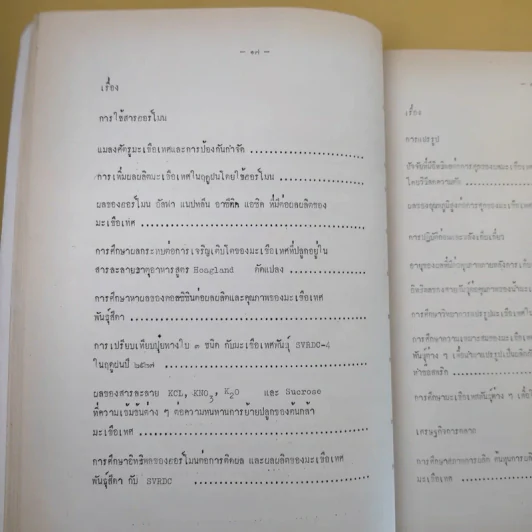 - ๑๗ -
เรื่อง
การใช้สารฮอร์โมน
แมลงศัตรูมะเขือเทศและการป้องกันกำจัด
การเพิ่มผลผลิตมะเขือเทศในฤดูฝนโดยใช้ฮอร์โมน
ผลของฮอร์โมน อัลฟา แนปทลีน อาซีติค แอซิด ที่มีต่อผลผลิตของ
มะเขือเทศ
การศึกษาผลกระทบต่อการเจริญเติบโตของมะเขือเทศที่ปลูกอยู่ใน
สารละลายธาตุอาหารสูตร Hoagland ดัดแปลง
การศึกษาหาผลของคอลชิซินต่อผลผลิตและคุณภาพของมะเขือเทศ
พันธุ์สีดา
การเปรียบเทียบปุ๋ยทางใบ ๓ ชนิด กับมะเขือเทศพันธุ์ SVRDC-4
ในฤดูฝนปี ๒๕๒๗
ผลของสารละลาย KCL, KNO3, K2O และ Sucrose
ที่ความเข้มข้นต่าง ๆ ต่อความทนทานการย้ายปลูกของต้นกล้า
มะเขือเทศ
การศึกษาอิทธิพลของฮอร์โมนต่อการติดผล และผลผลิตของมะเขือเทศ
พันธุ์สีดา กับ SVRDC
เรื่อง
การแปรรูป
การปฏิบัติ
การศึกษาวิทยาการแปรรูปมะเขือเทศ
การศึกษาความเหมาะสมของมะเขือเทศ
พันธุ์ต่าง ๆ
การศึกษามะเขือเทศพันธุ์ต่าง ๆ
เศรษฐกิจการตลาด
การศึกษาสภาพการผลิต ต้นทุนการผลิต
มะเขือเทศ